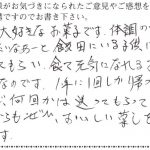 様がお気づきになられたご意見やご感想を
構ですのでお書き下さい。
大好きなお菓子です。体調の
なあーと飯田にいる
てもらい、食べて元気になれる
なのです。1年に1回しか帰っ
何回かは送ってもらって
もぜひおいしい菓し
ます。